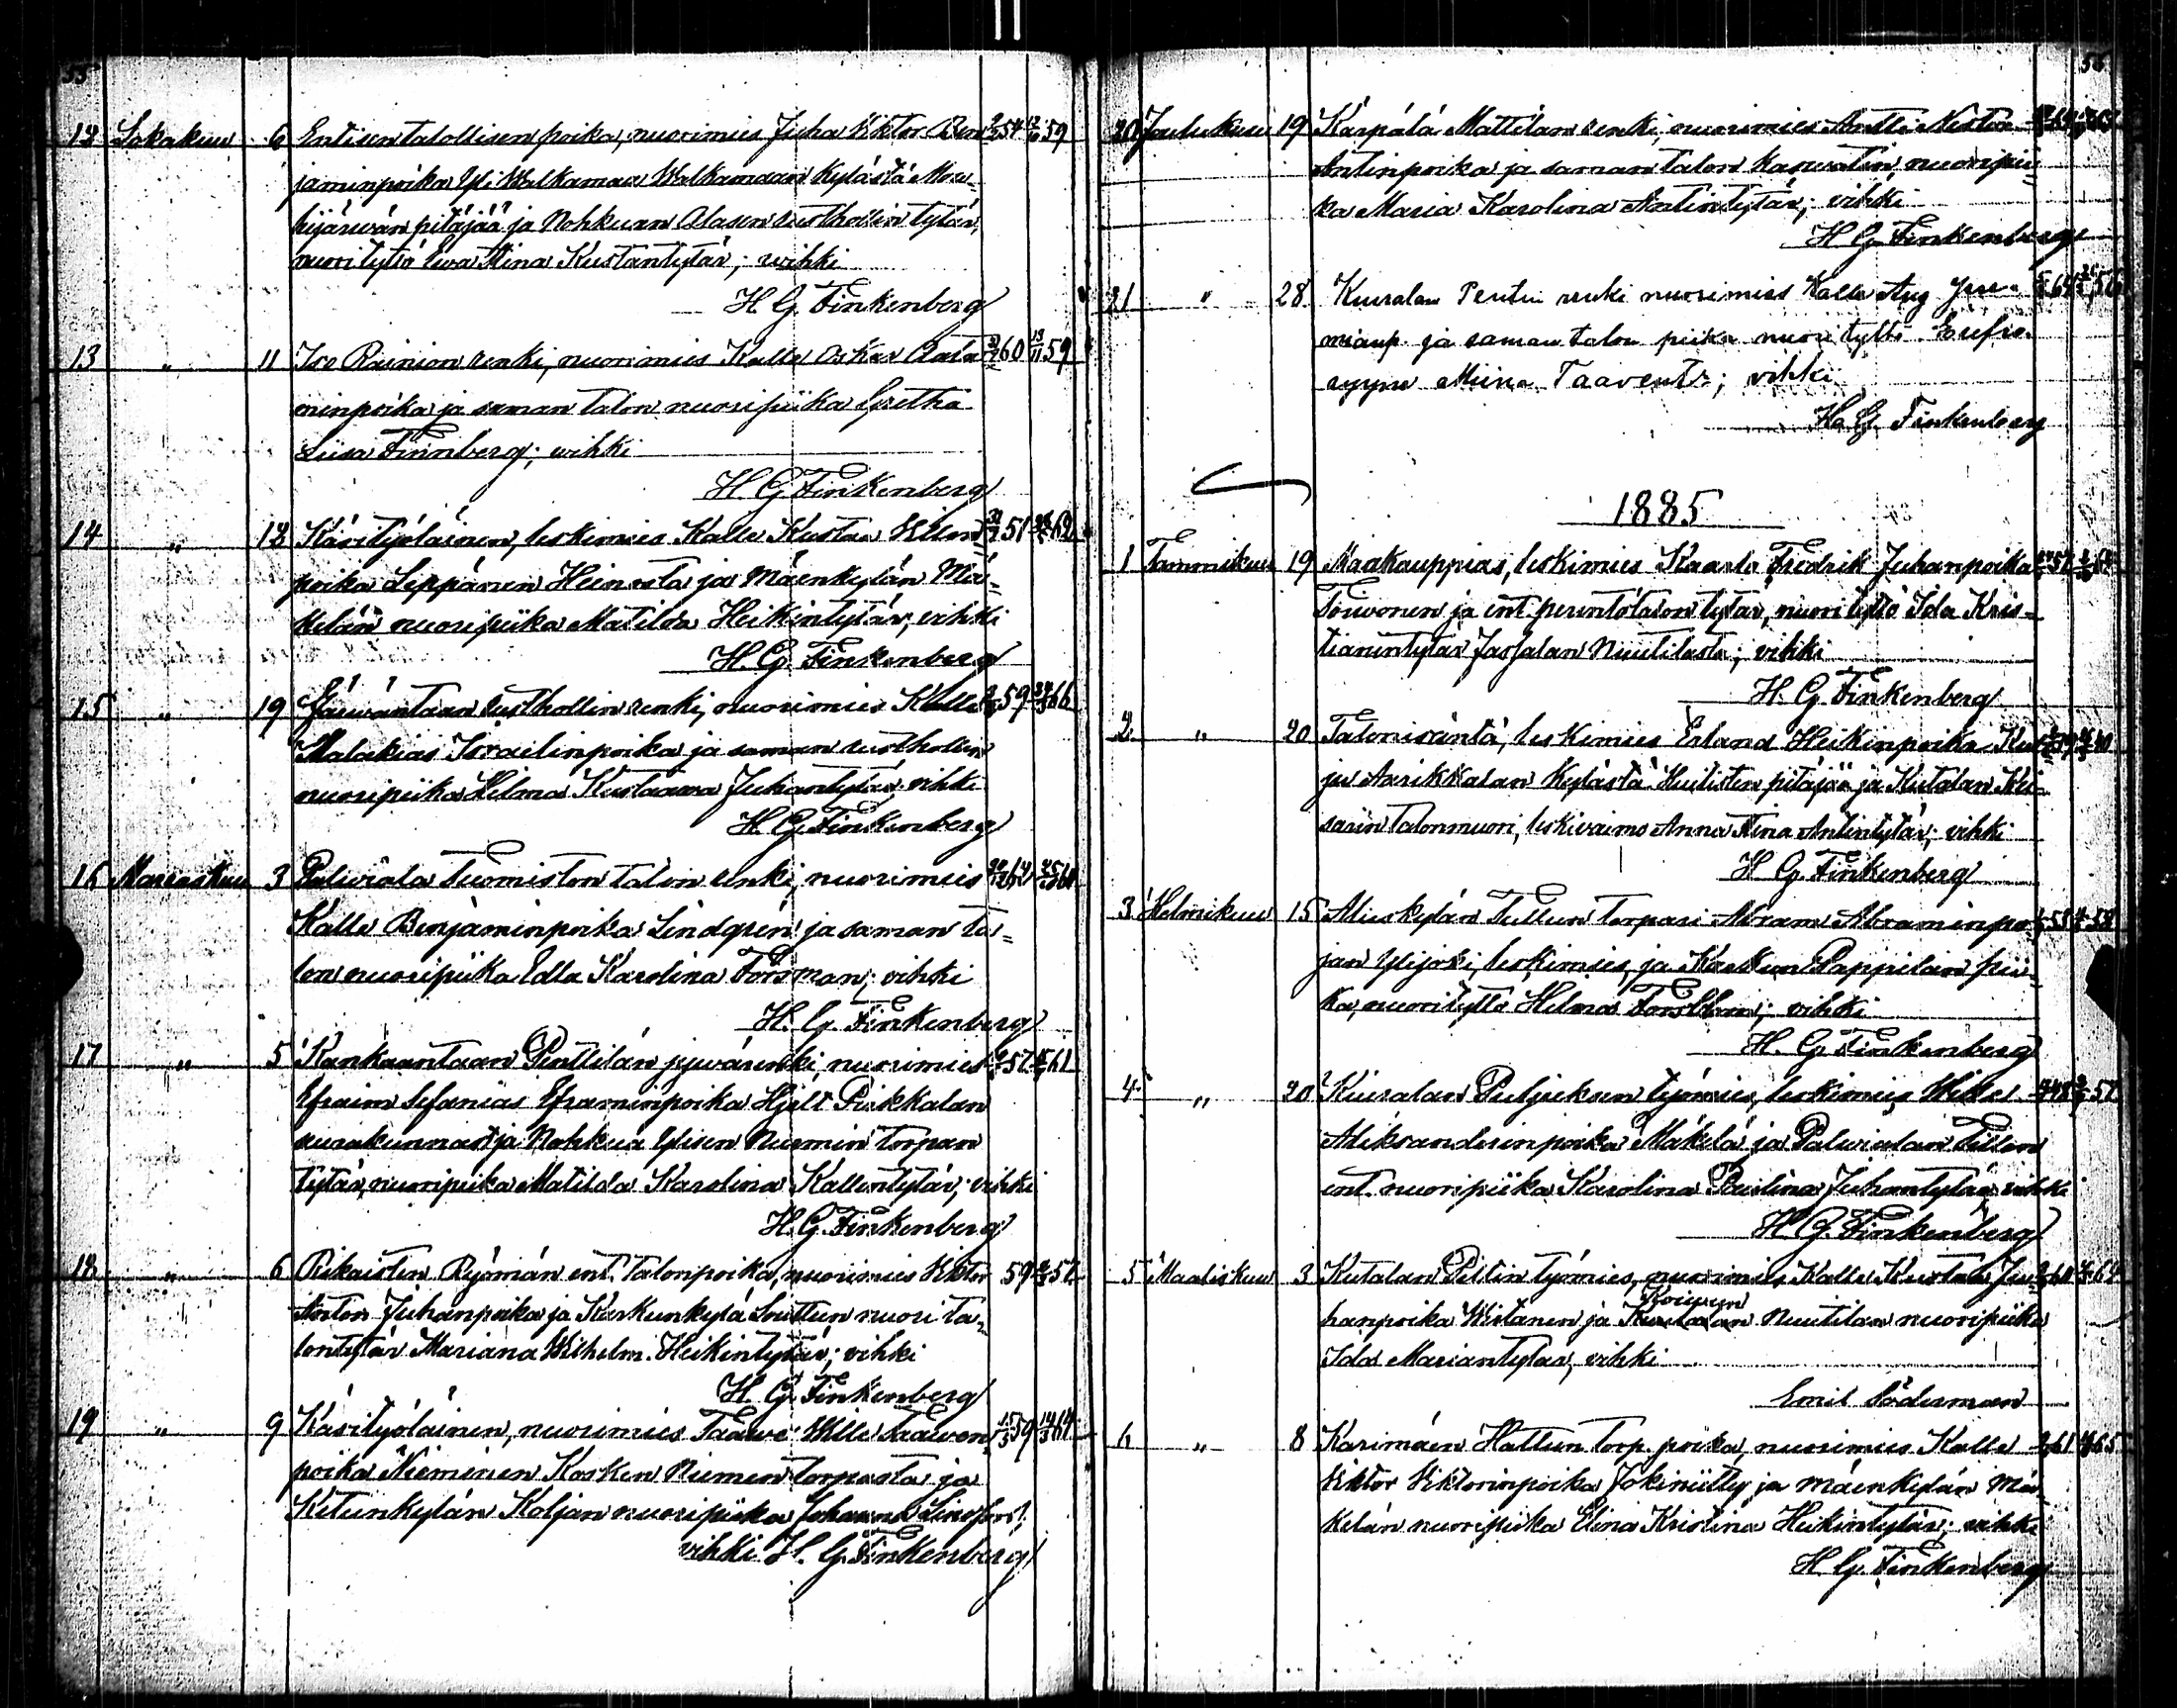 55
12 Lokakuu 6 Entisen talollisen poika, nuorimies Juha Viktor Ben
jaminpoika Yli Walkamaa Walkamaan kylästä Mou-
hijärwän pitäjää ja Nohkuan Alasen rusthollin tytär,
nuori tyttö Ewa Stina Kustantytär; wihki
H G Finkenberg
13 " 11 Iso Rainion renki, nuorimies Kalle Oskar Aata 60 59
minpoika ja saman talon nuoripiika Gretha
Liisa Finnberg; wihki
H G Finkenberg
14 " 12 Käsityöläinen, leskimies Kalle Kustaa 51 62
poika Leppänen Heinosta ja Mäenkylän Mä-
kelän nuoripiika Matilda Heikintytär; vihki
H. G. Finkenberg
15 " 19 Järwäntaan rusthollin renki, nuorimies Kalle 59 66
Malakias Israelinpoika ja saman rusthollin
nuoripiika Hilma Kustaawa Juhantytär, vihki
H G Finkenberg
16 Marraskuu 3 Palwiala Tuomiston talon renki, nuorimies
Kalle Benjaminpoika Lindgrén ja saman ta-
lon nuoripiika Edla Karolina Forsman; vihki
H. G. Finkenberg
17 " 5 Kankaantaan Penttilän jywärenki, nuorimies 57 61
Efraim Sefanias Eframinpoika Hjelt Pirkkalan
seurakunnasta ja Nohkua Ylisen Niemin torpan
tytär, nuoripiika Matilda Karolina Kallentytär, vihki
H. G. Finkenberg
18 " 6 Rikaisten Ryömän ent. talonpoika, nuorimies Viktor 59 52
Anton Juhanpoika ja Karkunkylä Souttun nuori ta-
lontytär Mariana Wilhelm. Heikintytär; vihki
H. G. Finkenberg
19 " 9 Käsityöläinen, nuorimies Taawe Wille Taawen 59 64
poika Nieminen Kosken Niemen torpasta ja
Ketunkylän Koljan nuoripiika
vihki H. G. Finkenberg
20 Joulukuu 19 Kärpälä Mattilan renki, nuorimies Antti Nestor
Antinpoika ja saman talon kaswatin, nuoripii-
ka Maria Karolina Antintytär; vihki
H G Finkenberg
21 " 28 Kuuralan Pentin renki nuorimies Kalle Aug
ja saman talon piika nuori tyttö Eufro-
syyne Miina Taavent.; vihki
H. G. Finkenberg
1885
1 Tammikuu 19 Maakauppias, leskimies Kaarlo Fredrik Juhanpoika
Toiwonen ja ent. perintötalon tytär, nuori tyttö Ida Kris-
tianintytär Jaskalan Nuutilasta; vihki
H. G. Finkenberg
2. " 20 Talonisäntä, leskimies Erland Heikinpoika
Aarikkalan kylästä Huittisten pitäjää ja Kutalan Kei-
sarin talonmuori, leskivaimo Anna Stina Antintytär; vihki
H G. Finkenberg
3 Helmikuu 15 Aluskylän Tullun torpari Abram Abraminpo
jan Ylijoki, leskimies, ja Karkun Pappilan pii-
ka, nuori tyttö Helma Forsblom; vihki
H. G. Finkenberg
4. " 20 Kuuralan työmies, leskimies 57
Aleksanderinpoika Mäkelä ja Palwialan
ent. nuoripiika Karolina Paulina Juhantytär vihki
H. G. Finkenberg
5 Maaliskuu 3 Kutalan Pettin työmies, nuorimies Kalle Kustaa Ju-
hanpoika Wirtanen ja Nuutilan nuoripiika
Ida Mariantytär, vihki
Emil Söderman
6 " 8 Karimäen Hattun torp. poika, nuorimies Kalle 61 65
Viktor Viktorinpoika Jokiniitty ja Mäenkylän Mä-
kelän nuoripiika Elina Kristina Heikintytär; vihki
H. G. Finkenberg